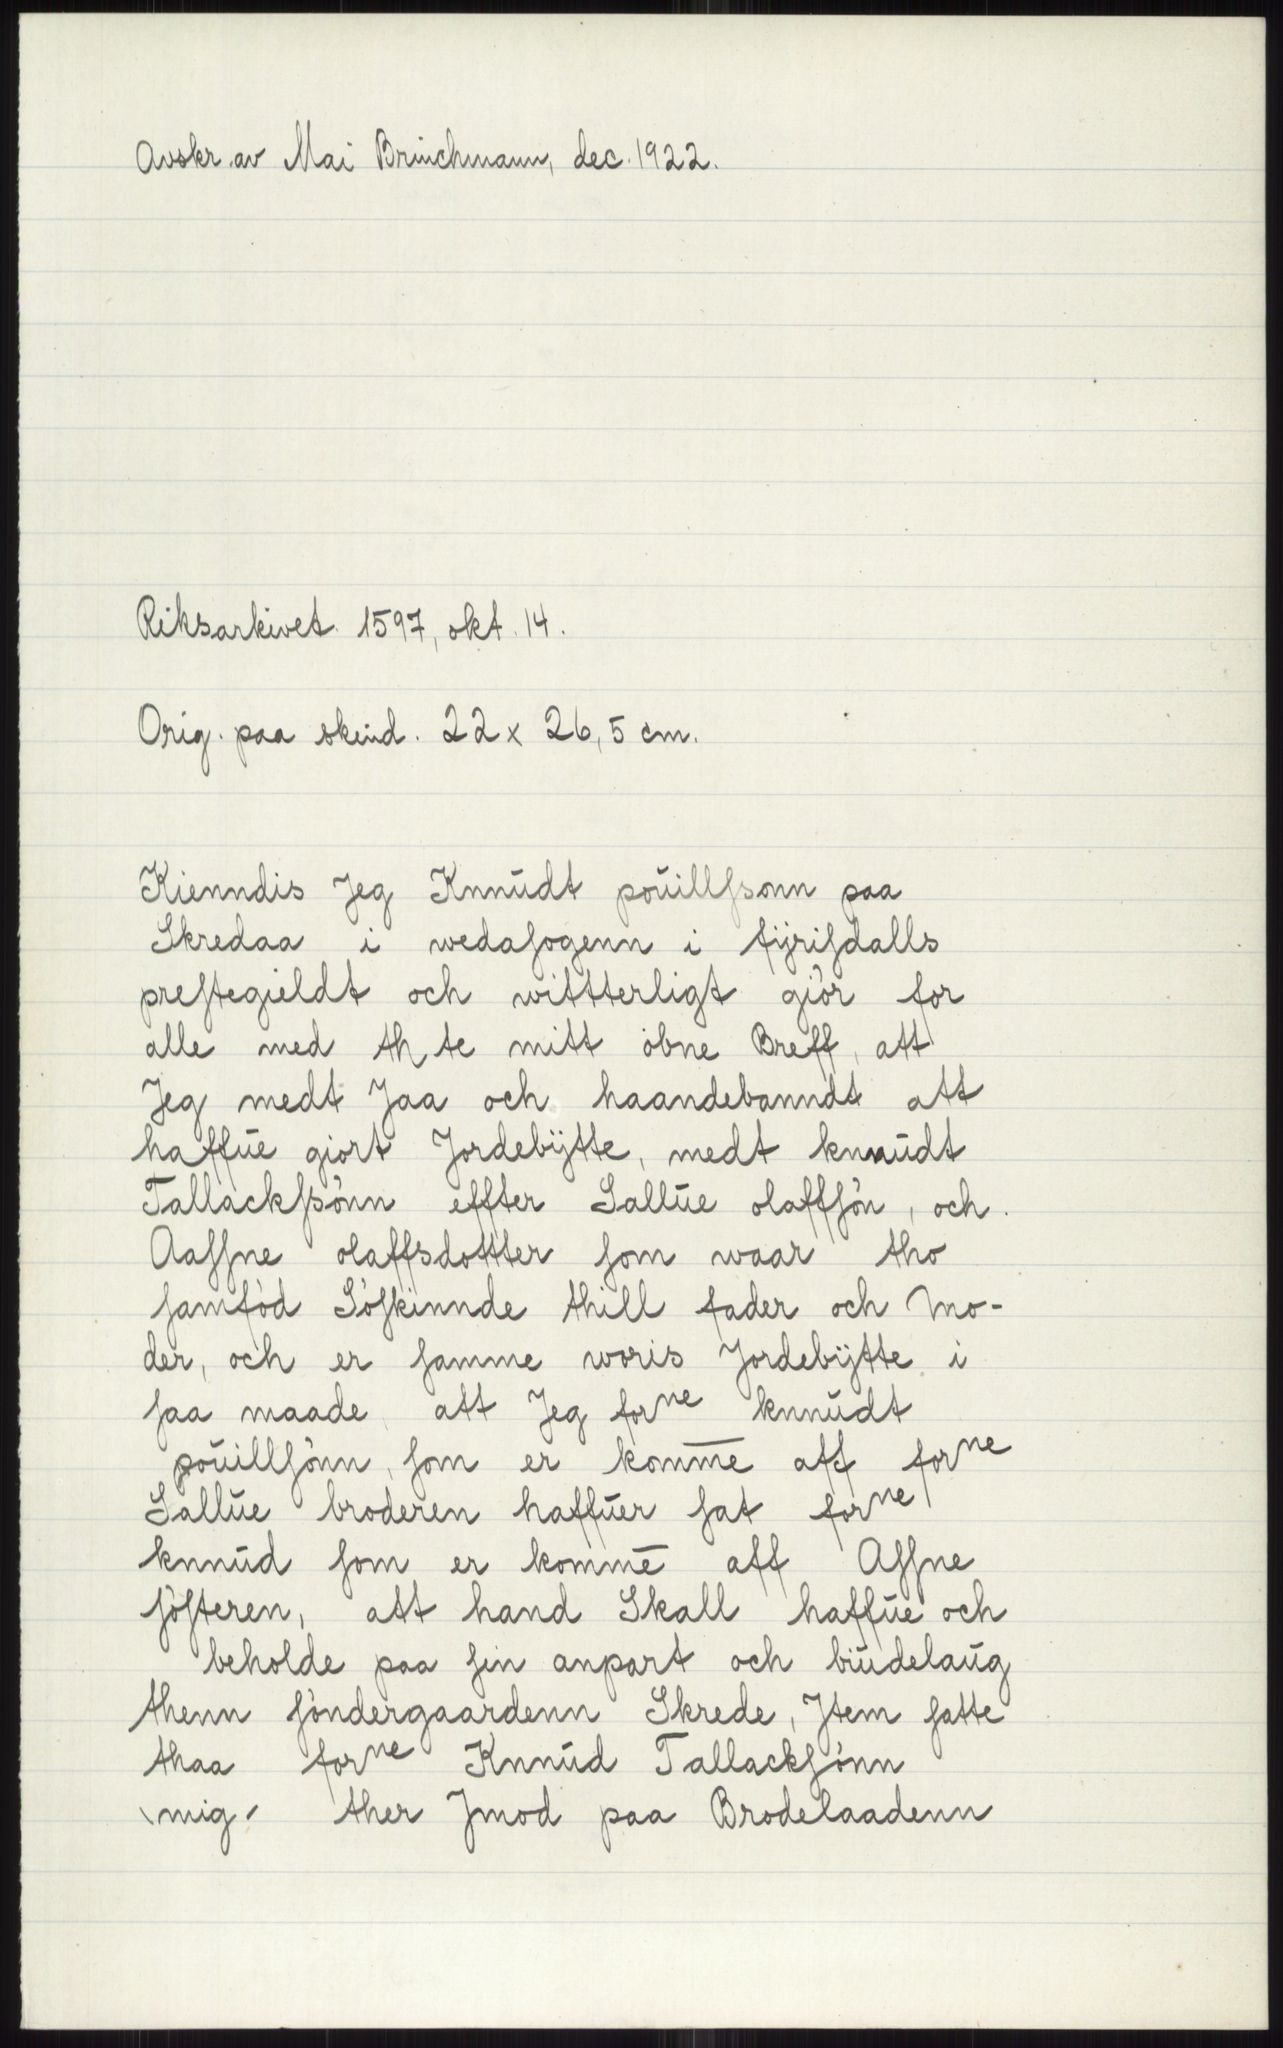 Avskr. av Mai Brinchmann, dec. 1922.
Riksarkivet 1597, okt. 14.
Orig. paa skind. 22 x 26,5 cm.
Kienndis Jeg Knnŭdt poŭillſsonn paa
Skredaa i wedaſogenn i fÿriſdalls
preſtegieldt och wittterligt giör for
alle med th te mitt öbne Breff, att
Jeg medt Jaa och haandebanndt att
haffŭe giort Jordebÿtte, medt knnŭdt
Tallackſsönn effter Sallŭe olaffſön, och
Aaſſne olaffsdottter ſom waar tho
ſamföd Söſkinnde thill fader och Mo-
der, och er ſamme woris Jordebÿtte i
ſaa maade, att Jeg forne knnŭdt
poŭillſönn, ſom er komme̅ aff forne
Sallŭe broderen haffŭer ſat forne
knnŭd ſom er komme̅ aff Aſſne
ſöſteren, att hand Skall haffŭe och
beholde paa ſin anpart och bŭdelaŭg
thenn ſöndergaardenn Skrede, Jtem ſatte
thaa forne Knnŭd Tallackſönn
\mig/ ther Jmod paa Brodelaadenn